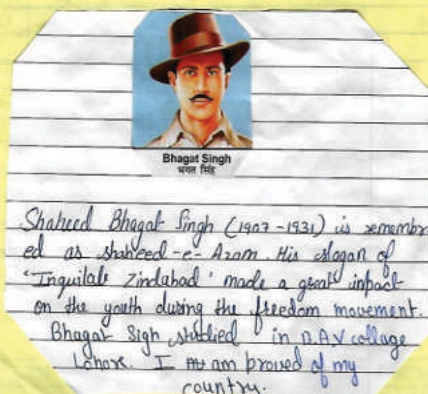 Bhagat Singh
भगत सिंह
Shaheed Bhagat Singh (1907-1931) is remembr
ed as shaheed-e-Azam. His slogan of
"Inquilab Zindabad' made a great inpact
on the youth during the freedom movement.
Bhagat Sigh studied in D.A.V collage
Lahore. I am proved of my
country.